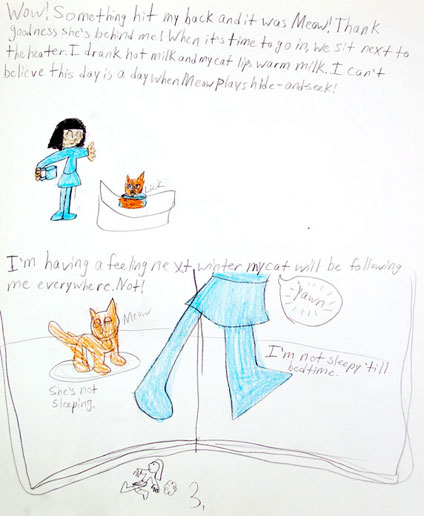 Wow! Something hit my back and it was Meow! Thank
goodness she's behind me! When it's time to go in, we sit next to
the heater. I drank hot milk and my cat lips warm milk. I can't
believe this day is a day when Meow plays hide-and-seek!
Lick
I'm having a feeling next winter my cat will be following
me everywhere. Not!
Yawn
Meow
I'm not sleepy 'till
bedtime.
She's not
sleeping.
3.